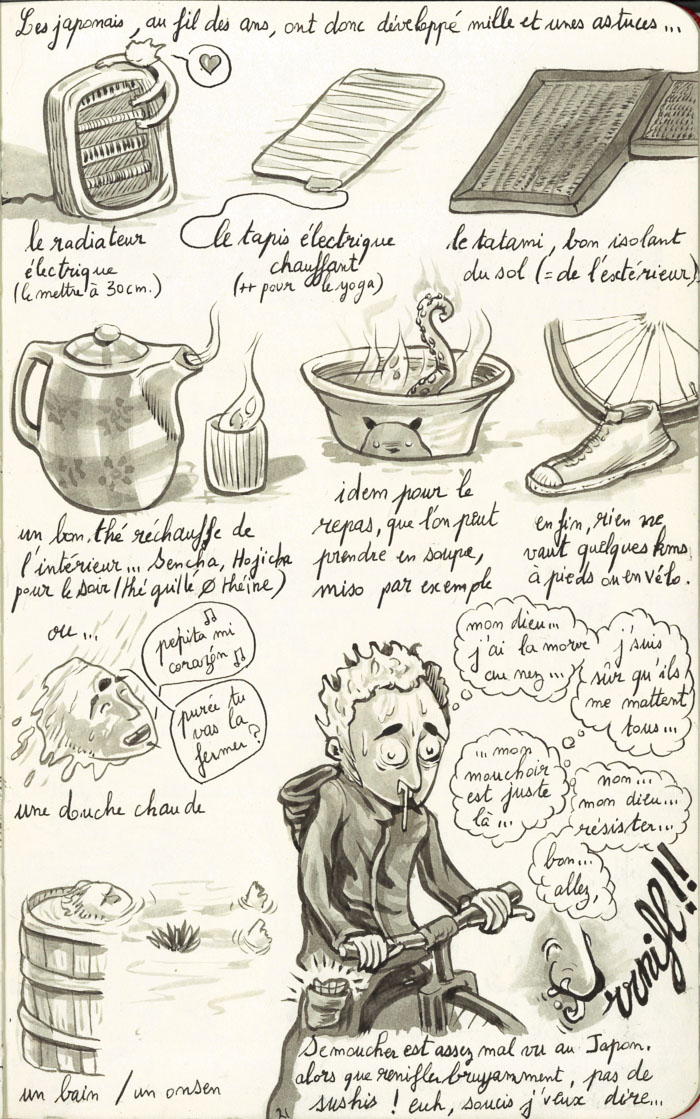 Les japonais, au fil des ans, ont donc développé mille et unes astuces...
le radiateur
électrique
(le mettre à 30cm.)
le tapis électrique
chauffant
(++ pour le yoga)
le tatami, bon isolant
du sol (= de l'extérieur)
un bon thé réchauffe de
l'intérieur... Sencha, Hojicha
pour le soir (thé grillé Ø théine)
idem pour le
repas, que l'on peut
prendre en soupe,
miso par exemple
enfin, rien ne
vaut quelques kms
à pieds ou en vélo.
ou...
pepita mi
corazón
purée tu
vas la
fermer?
une douche chaude
un bain / un onsen
mon dieu...
j'ai la morve
au nez...
j'suis
sûr qu'ils
me mattent
tous...
...mon
mouchoir
est juste
là...
non...
mon dieu...
résister...
bon...
allez,
rrenifl!!
Se moucher est assez mal vu au Japon.
alors que renifler bruyamment, pas de
sushis ! euh, soucis j'veux dire...